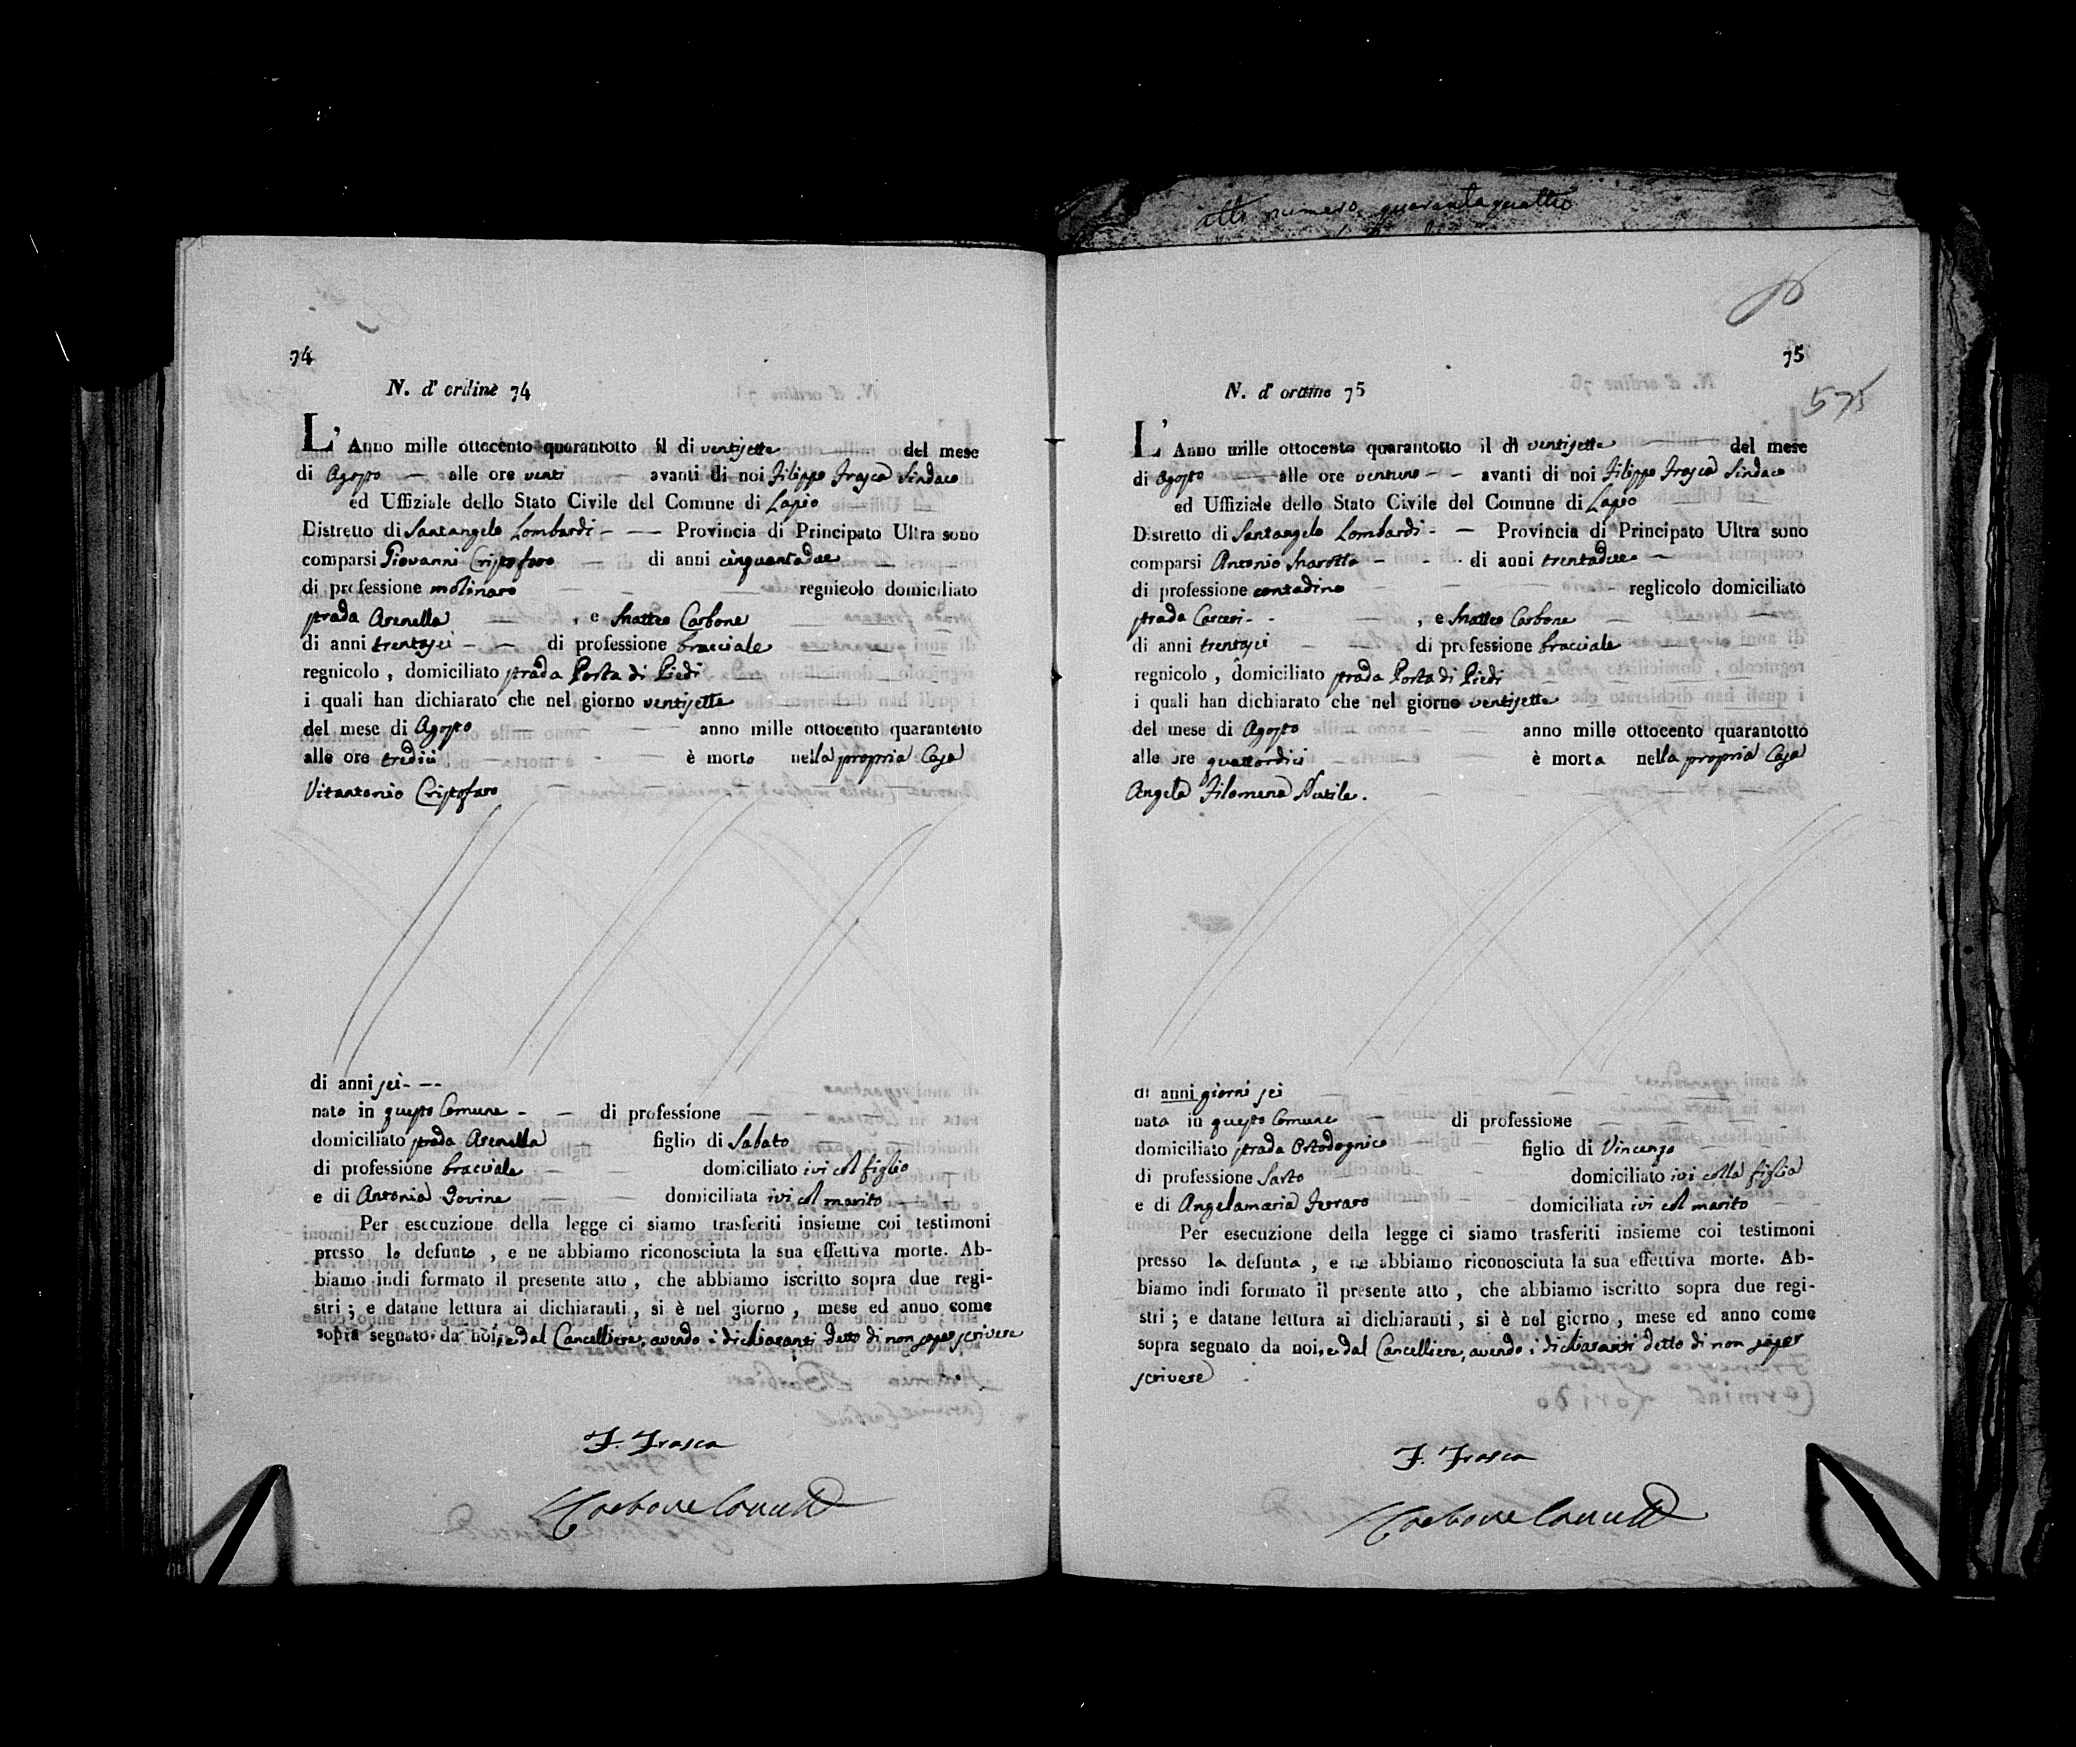 alto numero quarantaquattro
74
N. d' ordine 74
L' Anno mille ottocento quarantotto il di ventisette del mese
di Agosto — alle ore venti — avanti di noi Filippo Frasca Sindaco
ed Uffiziale dello Stato Civile del Comune di Lapio
Distretto di Santangelo Lombardi - — — Provincia di Principato Ultra sono
comparsi Giovanni Cristofaro — di anni cinquantadue
di professione molinaro — regnicolo domiciliato
strada Arenella , e Matteo Carbone
di anni trentasei - — di professione bracciale
regnicolo , domiciliato strada Porta di Piedi
i quali han dichiarato che nel giorno ventisette
del mese di Agosto — — anno mille ottocento quarantotto
alle ore tredici - è morto nella propria Casa
Vitantonio Cristofaro
di anni sei- --
nato in questo Comune - — di professione — —
domiciliato strada Arenella figlio di Sabato
di professione bracciale — domiciliato ivi col figlio
e di Antonia Iovine — — domiciliata ivi col marito — —
Per esecuzione della legge ci siamo trasferiti insieme coi testimoni
presso lo defunto , e ne abbiamo riconosciuta la sua effettiva morte. Ab-
biamo indi formato il presente atto , che abbiamo iscritto sopra due regi-
stri ; e datane lettura ai dichiaranti , si è nel giorno , mese ed anno come
sopra segnato da noi, e dal Cancelliere, avendo i dichiaranti detto di non saper scrivere
F. Frasca
Carbone Cancell
75
575
N. d' ordine 75
L' Anno mille ottocento quarantotto il di ventisette — del mese
di Agosto — alle ore ventuno - - avanti di noi Filippo Frasca Sindaco
ed Uffiziale dello Stato Civile del Comune di Lapio
Distretto di Santangelo Lombardi - — Provincia di Principato Ultra sono
comparsi Antonio - - - di anni trentadue -
di professione contadino - reglicolo domiciliato
strada Carceri - - — , e Matteo Carbone —
di anni trentasei — di professione bracciale
regnicolo , domiciliato strada Porta di Piedi
i quali han dichiarato che nel giorno ventisette
del mese di Agosto — anno mille ottocento quarantotto
alle ore quattordici è morta nella propria Casa
Angela Filomena Nutile.
di anni giorni sei
nata in questo Comune — di professione — —
domiciliato strada Ortodognico figlio di Vincenzo
di professione Sarto domiciliato ivi colla figlia
e di Angelamaria Ferraro domiciliata ivi col marito
Per esecuzione della legge ci siamo trasferiti insieme coi testimoni
presso la defunta , e ne abbiamo riconosciuta la sua effettiva morte. Ab-
biamo indi formato il presente atto , che abbiamo iscritto sopra due regi-
stri ; e datane lettura ai dichiaranti , si è nel giorno , mese ed anno come
sopra segnato da noi, e dal Cancelliere, avendo i dichiaranti detto di non saper
scrivere
F. Frasca
Carbone Cancell